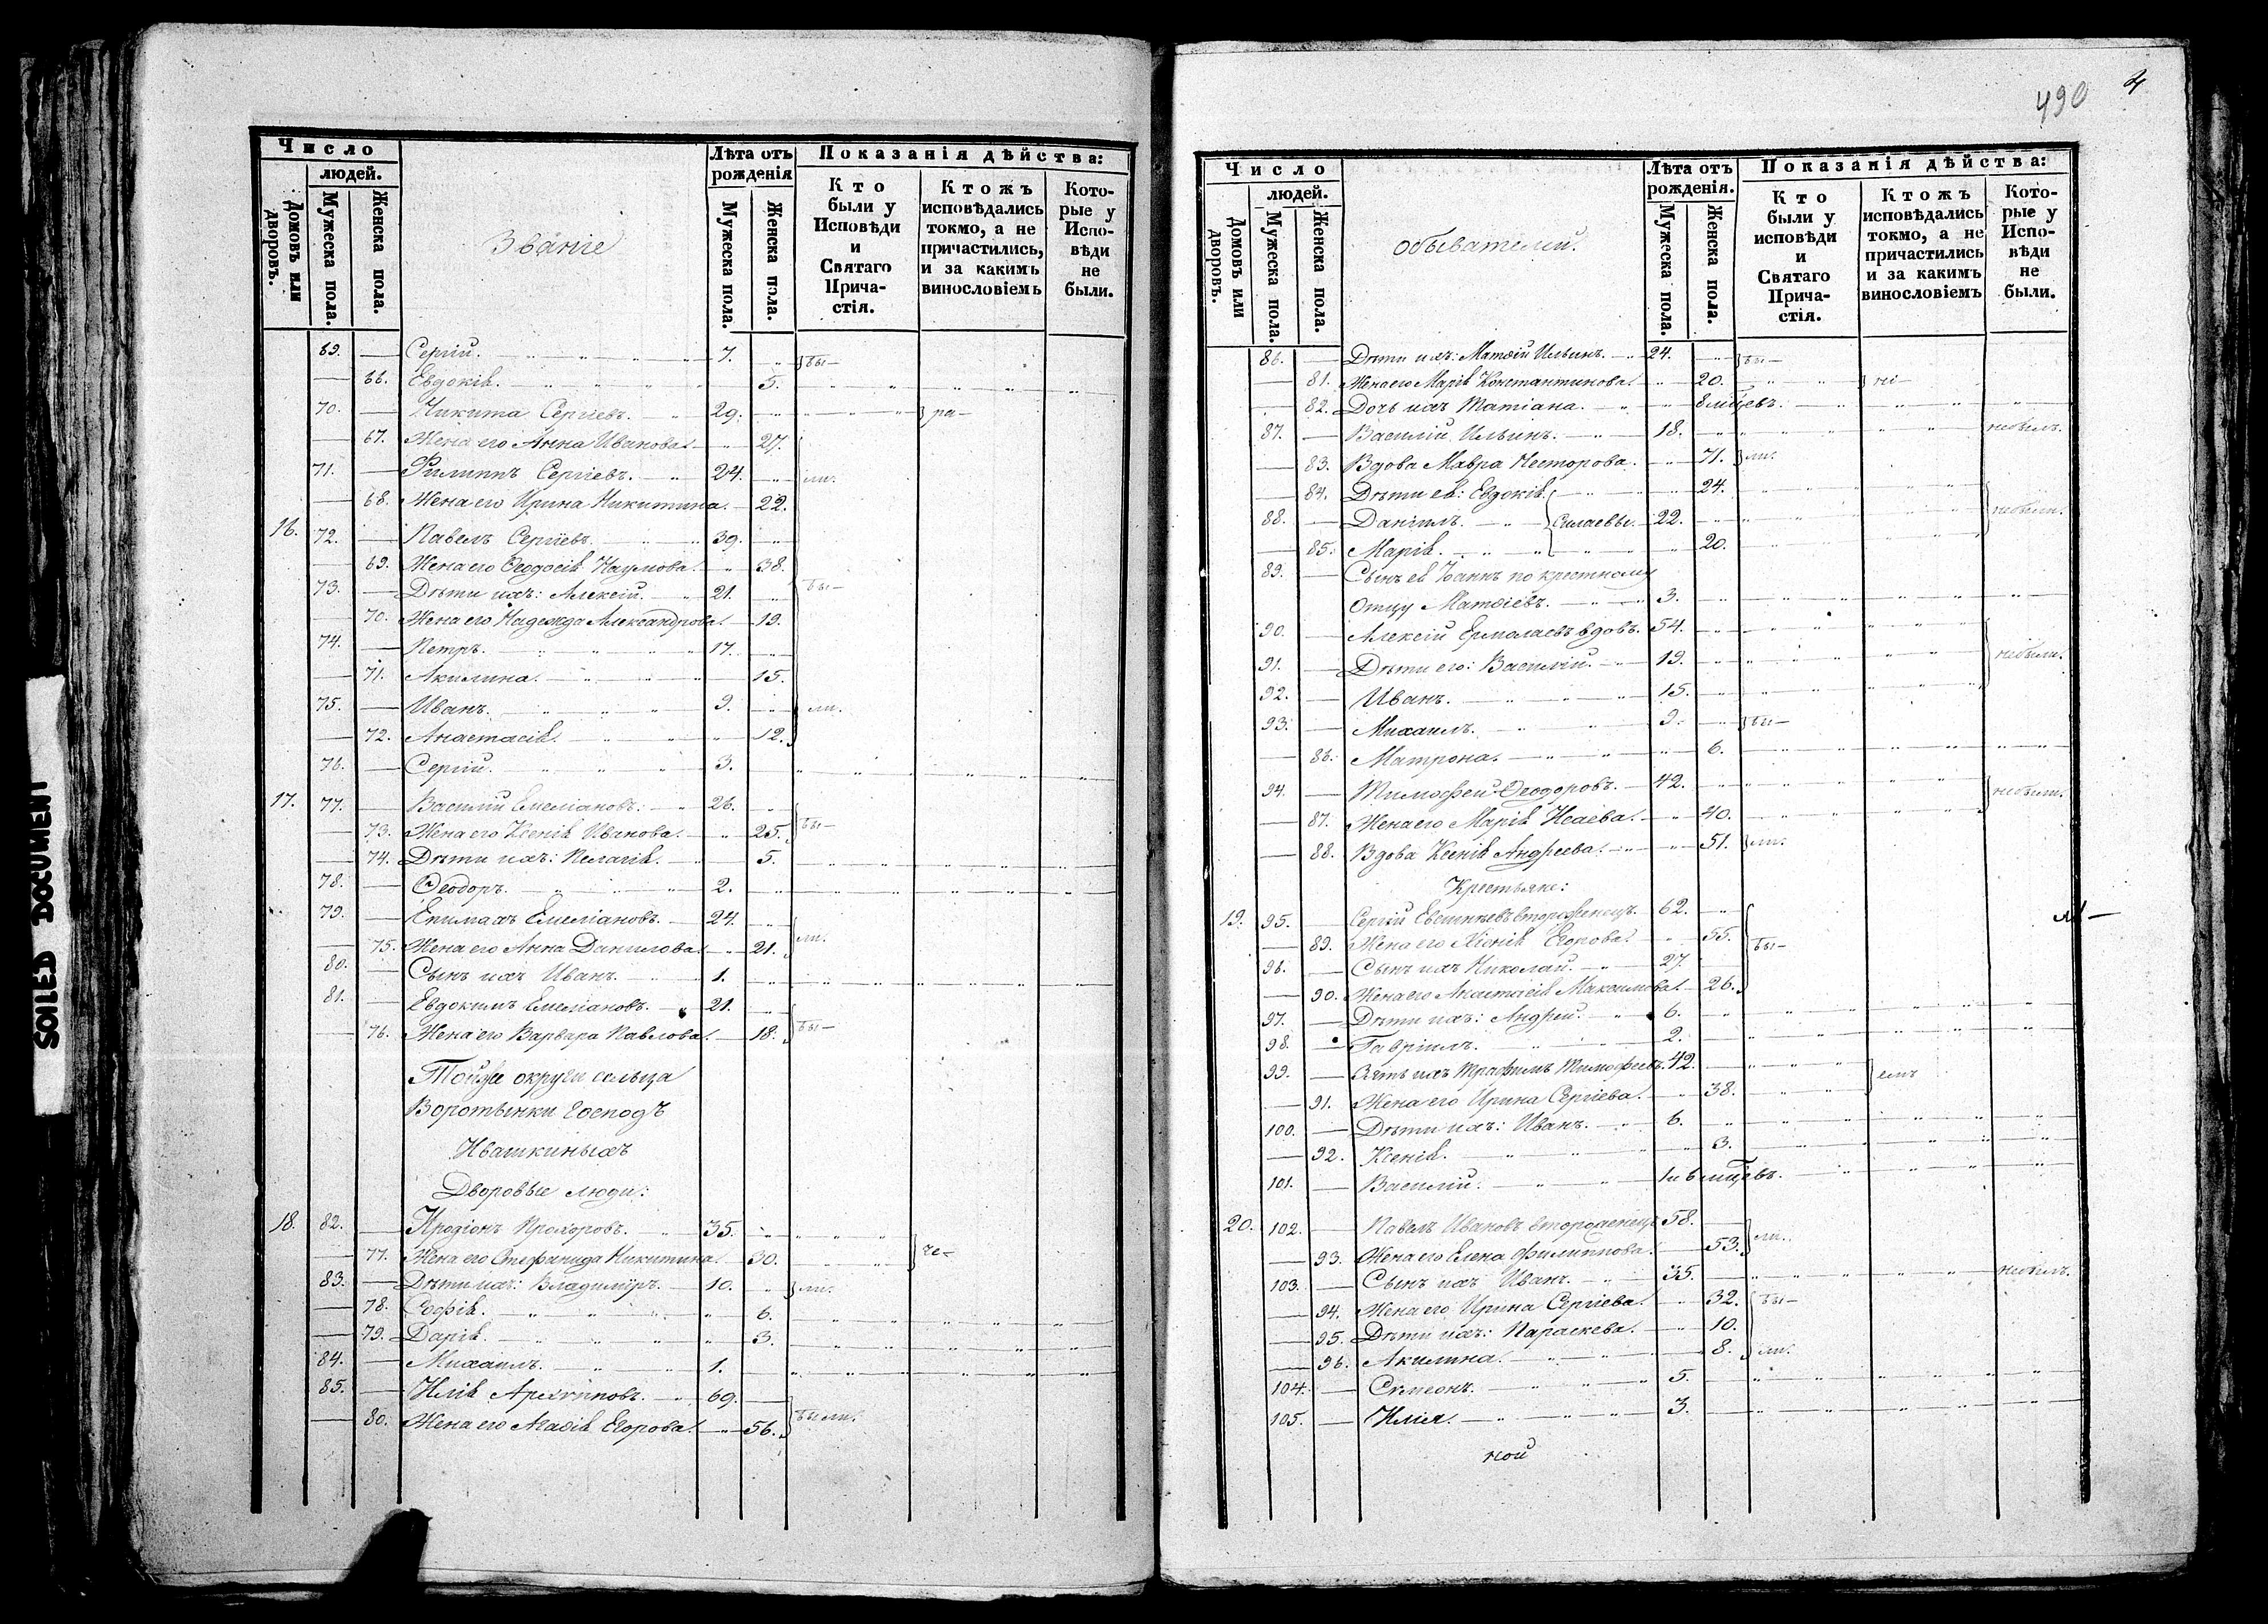 Число
людей.
Домовъ или дворовъ.
Мужеска пола.
Женска пола.
Званіе
Лѣта отъ рожденія
Мужеска пола.
Женска пола.
Показанія дѣйства:
Кто были у Исповѣди и Святаго Прича-стія.
Ктожъ исповѣдались токмо, а не причастились, и за какимъ винословіемъ
Кото-рые у Испо-вѣди не были.
69. — Сергій. 7. бы—
— 66. Евдокія. 5.
70. — Никита Сергіевъ. 29. ра—
— 67. Жена его Анна Иванова. 27.
71. — Филиппъ Сергіевъ. 24. ли.
— 68. Жена его Ирина Никитина. 22.
16. 72. — Павелъ Сергіевъ. 39.
— 69. Жена его Ѳеодосія Наумова. 38.
73. — Дѣти ихъ: Алексій. 21. бы—
— 70. Жена его Надежда Александрова. 19.
74. — Петръ. 17.
— 71. Акилина. 15.
75. — Иванъ. 9. ли.
— 72. Анастасія. 12.
76. — Сергій. 3.
17. 77. — Василій Емеліановъ. 26.
— 73. Жена его Ксенія Иванова. 25. бы—
— 74. Дѣти ихъ: Пелагія. 5.
78. — Ѳеодоръ. 2.
79. — Епимахъ Емеліановъ. 24.
— 75. Жена его Анна Данилова. 21. ли.
80. — Сынъ ихъ Иванъ. 1.
81. — Евдокимъ Емеліановъ. 21.
— 76. Жена его Варвара Павлова. 18. бы—
Тойже округи сельца
Воротынки Господъ
Ивашкиныхъ
Дворовые люди:
18. 82. — Иродіонъ Прохоровъ. 35.
— 77. Жена его Стефанида Никитина. 30. че—
83. — Дѣти ихъ: Владиміръ. 10. ли.
— 78. Софія. 6.
— 79. Дарія. 3.
84. — Михаилъ. 1.
85. — Илія Архиповъ. 69.
— 80. Жена его Агаѳія Егорова. 56. были.
490 4
Число
людей.
Домовъ или дворовъ.
Мужеска пола.
Женска пола.
обывателей.
Лѣта отъ рожденія.
Мужеска пола.
Женска пола.
Показанія дѣйства:
Кто были у исповѣди и Святаго Прича-стія.
Ктожъ исповѣдались токмо, а не причастились и за какимъ винословіемъ
Кото-рые у Испо-вѣди не были.
86. — Дѣти ихъ: Матѳій Ильинъ. 24. бы—
— 81. Жена его Марія Константинова. 20. ні—
— 82. Дочь ихъ Татіана. 8 мцевъ.
87. — Василій Ильинъ. 18. небылъ.
— 83. Вдова Мавра Несторова. 71. ли.
— 84. Дѣти ея: Евдокія. 24.
88. — Даніилъ. Силаевы. 22. небыли.
— 85. Марія. 20.
89. — Сынъ ея Іоаннъ по крестному
отцу Матѳіевъ. 3.
90. — Алексій Ермолаевъ вдовъ. 54.
91. — Дѣти его: Василій. 19. небыли.
92. — Иванъ. 15.
93. — Михаилъ. 9. бы—
— 86. Матрона. 6.
94. — Тимофей Ѳеодоровъ. 42. небыли.
— 87. Жена его Марія Исаева. 40.
— 88. Вдова Ксенія Андреева. 51. ли.
Крестьяне:
19. 95. — Сергій Евсигнѣевъ второженецъ. 62.
— 89. Жена его Ксенія Егорова. 55. бы—
96. — Сынъ ихъ Николай. 27.
— 90. Жена его Анастасія Максимова. 26.
97. — Дѣти ихъ: Андрей. 6.
98. — Гавріилъ. 2.
99. — Зять ихъ Трофимъ Тимофеевъ. 42.
— 91. Жена его Ирина Сергіева. 38. емъ
100. — Дѣти ихъ: Иванъ. 6.
— 92. Ксенія. 3.
101. — Василій. 1 и 6 мцевъ.
20. 102. — Павелъ Ивановъ второженецъ 58.
— 93. Жена его Елена Филиппова. 53. ли.
103. — Сынъ ихъ Иванъ. 35. небылъ.
— 94. Жена его Ирина Сергіева. 32. бы—
— 95. Дѣти ихъ: Параскева. 10.
— 96. Акилина. 8. ли.
104. — Симеонъ. 5.
105. — Илія. 3.
ной
SOILED DOCUMENT